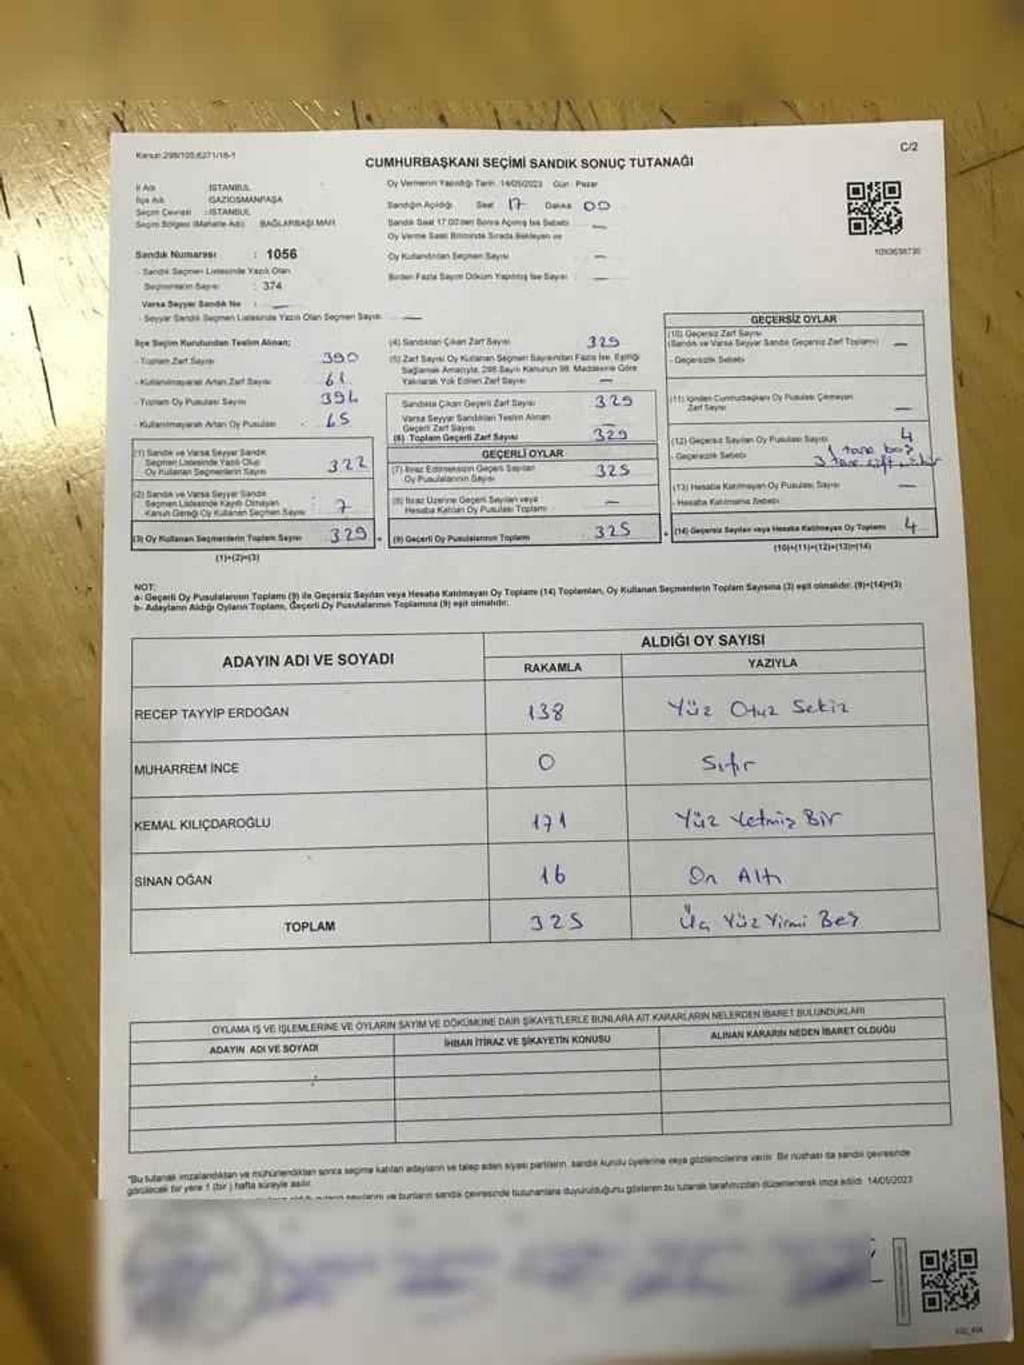 Kanun:298/105,6271/16-1
C/2
CUMHURBAŞKANI SEÇİMİ SANDIK SONUÇ TUTANAĞI
İl Adı : İSTANBUL
İlçe Adı : GAZİOSMANPAŞA
Seçim Çevresi : İSTANBUL
Seçim Bölgesi (Mahalle Adı) : BAĞLARBAŞI MAH.
Sandık Numarası : 1056
- Sandık Seçmen Listesinde Yazılı Olan
Seçmenlerin Sayısı : 374
Varsa Seyyar Sandık No : —
- Seyyar Sandık Seçmen Listesinde Yazılı Olan Seçmen Sayısı : —
Oy Vermenin Yapıldığı Tarih : 14/05/2023 Gün : Pazar
Sandığın Açıldığı Saat 17 Dakika 00
Sandık Saat 17:00'den Sonra Açılmış İse Sebebi —
Oy Verme Saati Bitiminde Sırada Bekleyen ve
Oy Kullandırılan Seçmen Sayısı —
Birden Fazla Sayım Döküm Yapılmış İse Sayısı : —
İlçe Seçim Kurulundan Teslim Alınan;
- Toplam Zarf Sayısı : 390
- Kullanılmayarak Artan Zarf Sayısı : 61
- Toplam Oy Pusulası Sayısı : 394
- Kullanılmayarak Artan Oy Pusulası : 65
(1) Sandık ve Varsa Seyyar Sandık
Seçmen Listesinde Yazılı Olup
Oy Kullanan Seçmenlerin Sayısı : 322
(2) Sandık ve Varsa Seyyar Sandık
Seçmen Listesinde Kayıtlı Olmayan
Kanun Gereği Oy Kullanan Seçmen Sayısı : 7
(3) Oy Kullanan Seçmenlerin Toplam Sayısı : 329
(1)+(2)=(3)
(4) Sandıktan Çıkan Zarf Sayısı : 329
(5) Zarf Sayısı Oy Kullanan Seçmen Sayısından Fazla İse, Eşitliği
Sağlamak Amacıyla, 298 Sayılı Kanunun 98. Maddesine Göre
Yakılarak Yok Edilen Zarf Sayısı : —
Sandıkta Çıkan Geçerli Zarf Sayısı : 329
Varsa Seyyar Sandıktan Teslim Alınan
Geçerli Zarf Sayısı : —
(6) Toplam Geçerli Zarf Sayısı : 329
GEÇERLİ OYLAR
(7) İtiraz Edilmeksizin Geçerli Sayılan
Oy Pusulalarının Sayısı : 325
(8) İtiraz Üzerine Geçerli Sayılan veya
Hesaba Katılan Oy Pusulası Toplamı : —
(9) Geçerli Oy Pusulalarının Toplamı : 325
GEÇERSİZ OYLAR
(10) Geçersiz Zarf Sayısı
(Sandık ve Varsa Seyyar Sandık Geçersiz Zarf Toplamı) : —
- Geçersizlik Sebebi :
(11) İçinden Cumhurbaşkanı Oy Pusulası Çıkmayan
Zarf Sayısı : —
(12) Geçersiz Sayılan Oy Pusulası Sayısı : 4
- Geçersizlik Sebebi : 1 tane boş
3 tane çift
(13) Hesaba Katılmayan Oy Pusulası Sayısı : —
- Hesaba Katılmama Sebebi :
(14) Geçersiz Sayılan veya Hesaba Katılmayan Oy Toplamı : 4
(10)+(11)+(12)+(13)=(14)
NOT:
a- Geçerli Oy Pusulalarının Toplamı (9) ile Geçersiz Sayılan veya Hesaba Katılmayan Oy Toplamı (14) Toplamları, Oy Kullanan Seçmenlerin Toplam Sayısına (3) eşit olmalıdır. (9)+(14)=(3)
b- Adayların Aldığı Oyların Toplamı, Geçerli Oy Pusulalarının Toplamına (9) eşit olmalıdır.
ADAYIN ADI VE SOYADI
ALDIĞI OY SAYISI
RAKAMLA YAZIYLA
RECEP TAYYİP ERDOĞAN 138 Yüz Otuz Sekiz
MUHARREM İNCE 0 Sıfır
KEMAL KILIÇDAROĞLU 171 Yüz Yetmiş Bir
SİNAN OĞAN 16 On Altı
TOPLAM 325 Üç Yüz Yirmi Beş
OYLAMA İŞ VE İŞLEMLERİNE VE OYLARIN SAYIM VE DÖKÜMÜNE DAİR ŞİKAYETLERLE BUNLARA AİT KARARLARIN NELERDEN İBARET BULUNDUKLARI
ADAYIN ADI VE SOYADI İHBAR İTİRAZ VE ŞİKAYETİN KONUSU ALINAN KARARIN NEDEN İBARET OLDUĞU
*Bu tutanak imzalandıktan ve mühürlendikten sonra seçime katılan adayların ve talep eden siyasi partilerin, sandık kurulu üyelerine veya gözlemcilerine verilir. Bir nüshası da sandık çevresinde
görülecek bir yere 1 (bir) hafta süreyle asılır.
sayılarını ve bunların sandık çevresinde bulunanlara duyurulduğunu gösteren bu tutanak tarafımızdan düzenlenerek imza edildi. 14/05/2023